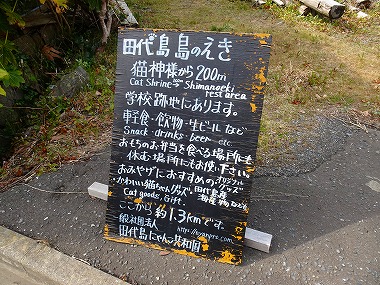 田代島 島のえき
猫神様から200m
Cat Shrine Shimanoeki
rest area
学校跡地にあります。
軽食・飲物・生ビールなど
Snack・drinks・beer etc.
おもちのお弁当を食べる場所も
休む場所にもお使い下さい。
おみやげにおすすめの
かわいい猫ちゃんグッズ。
Cat goods, Gift
田代島産
海産物など
ここから約1.3kmです。
一般社団法人
田代島にゃんこ共和国